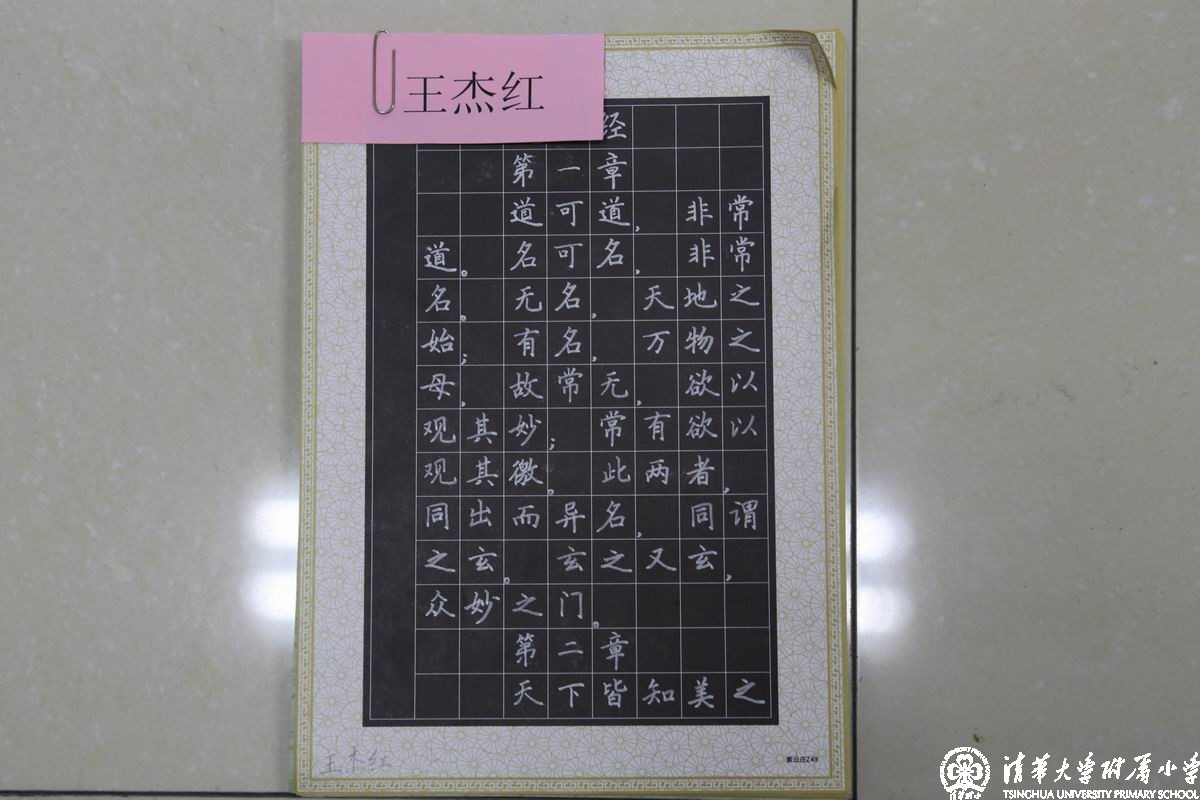 王杰红
经
第一章
道可道，非常
道。名可名，非常
名。无名，天地之
始；有名，万物之
母，故常无，欲以
观其妙；常有欲以
观其徼。此两者，
同出而异名，同谓
之玄。玄之又玄，
众妙之门。
第二章
天下皆知美之
王杰红
紫云庄Z48
清华大学附属小学
TSINGHUA UNIVERSITY PRIMARY SCHOOL